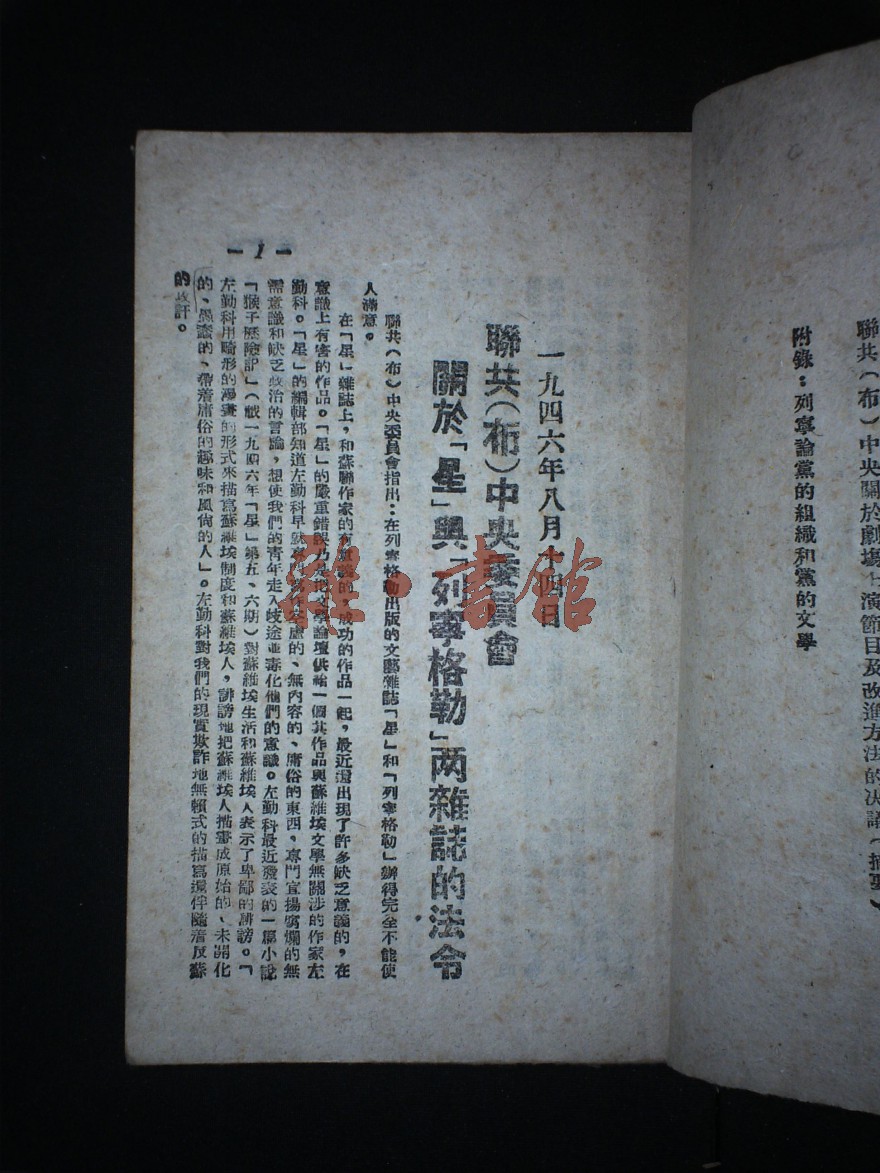 聯共(布)中央關於劇場上演節目及改進方法的決議(摘要)
附錄:列寧論黨的組織和黨的文學
一九四六年八月十四日
聯共(布)中央委員會
關於「星」與「列寧格勒」两雜誌的法令
聯共(布)中央委員會指出:在列寧格勒出版的文藝雜誌「星」和「列寧格勒」辦得完全不能使
人滿意。
在「星」雜誌上,和蘇聯作家的有意義的,成功的作品一起,最近還出現了許多缺乏意義的,在
意識上有害的作品。「星」的嚴重錯誤乃是把文學論壇供給一個其作品與蘇維埃文學無關涉的作家左
勤科。「星」的編輯部知道左勤科早就專門寫作空虛的、無內容的、庸俗的東西,專門宣揚腐爛的無
需意識和缺乏政治的言論,想使我們的青年走入歧途並毒化他們的意識。左勤科最近發表的一篇小說
「猴子歷險記」(載一九四六年「星」第五、六期)對蘇維埃生活和蘇維埃人表示了卑鄙的誹謗。「
左勤科用畸形的漫畫的形式來描寫蘇維埃制度和蘇維埃人,誹謗地把蘇維埃人描畫成原始的、未開化
的、愚蠢的、帶着庸俗的趣味和風尙的人」。左勤科對我們的現實欺詐地無賴式的描寫還伴隨着反蘇
的攻訐。
— 1 —
雜·書館